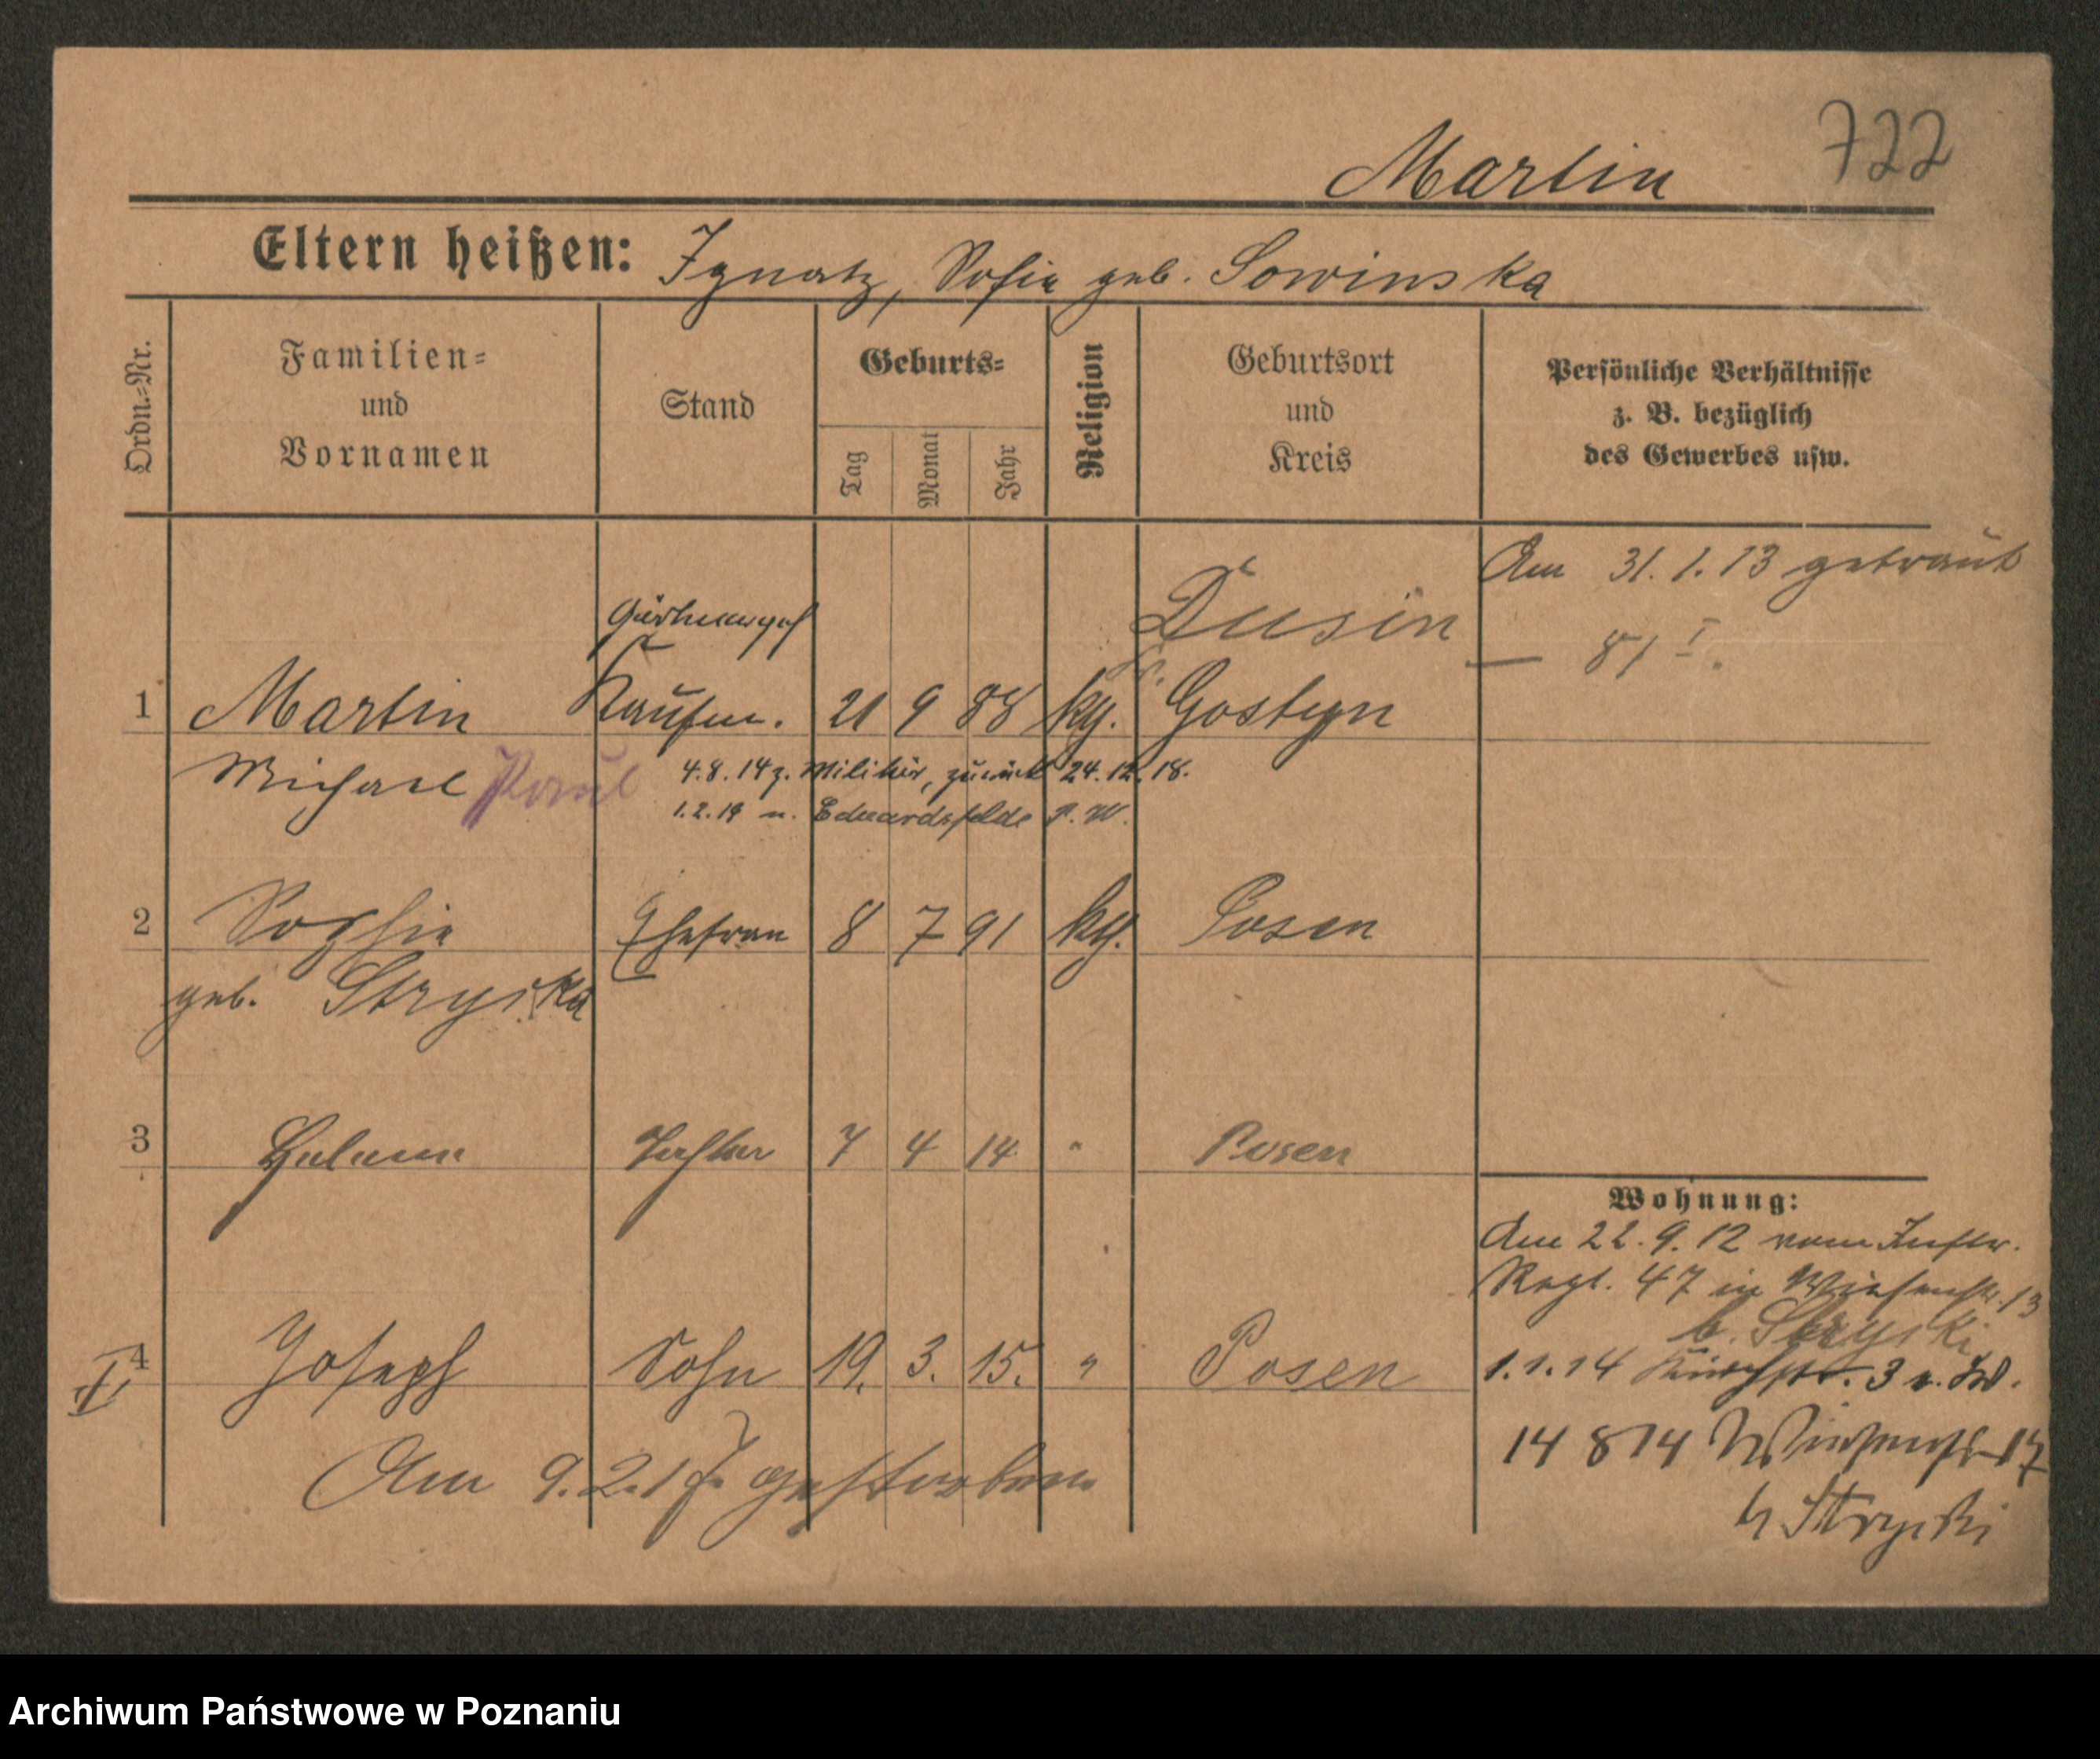 722
Martin
Eltern heißen: Ignatz, Sofie geb. Sowinska
Ordn.=Nr.
Familien=
und
Vornamen
Stand
Geburts=
Tag
Monat
Jahr
Religion
Geburtsort
und
Kreis
Persönliche Verhältnisse
z. B. bezüglich
des Gewerbes usw.
Am 31.1.13 getraut
Dusin
81 I.
1 Martin Kaufm. 21 9 88 kg. Gostyn
Michael Paul 4.8.14 z. Militär, zurück 24.12.18.
1.2.19 n. Eduardsfelde P. W.
2 Sophie Ehefrau 8 7 91 kg. Posen
geb. Stryska
3 Helene Tochter 7 4 14 " Posen
Wohnung:
Am 22.9.12 vom Inftr.
Regt. 47 in Wiesenstr. 13
b. Stryski
4 Joseph Sohn 19. 3. 15. " Posen
1.1.14 3
14 8 14 Wiesenstr 17
b Stryski
Am 9.2.17. gestorben
Archiwum Państwowe w Poznaniu